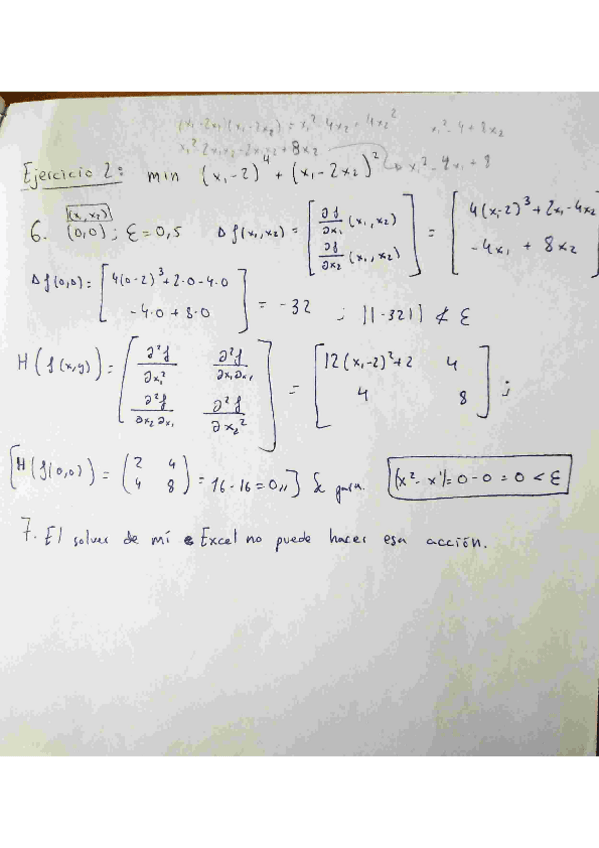 (x₁-2x₂)(x₁-2x₂) = x₁² 4x₂ 4x₂² x₁² 4+8x₂
x₁² 2x₁x₂-2x₁x₂+8x₂ x₁²-4x₁+8
Ejercicio 2: min (x₁-2)⁴ + (x₁-2x₂)²
(x₁,x₂)
6. (0,0) ; ε=0,5 Δf(x₁,x₂) = [∂f/∂x₁ (x₁,x₂) ; ∂f/∂x₂ (x₁,x₂)] = [4(x₁-2)³+2x₁-4x₂ ; -4x₁ + 8x₂]
Δf(0,0) = [4(0-2)³+2·0-4·0 ; -4·0+8·0] = -32 ; ||-32|| ≮ ε
H(f(x,y)) = [∂²f/∂x₁² ∂²f/∂x₁∂x₁ ; ∂²f/∂x₂∂x₁ ∂²f/∂x₂²] = [12(x₁-2)²+2 4 ; 4 8] ;
[H(f(0,0)) = (2 4 ; 4 8) = 16-16=0,,] Se para. |x²-x¹|=0-0=0<ε
7. El solver de mí Excel no puede hacer esa acción.